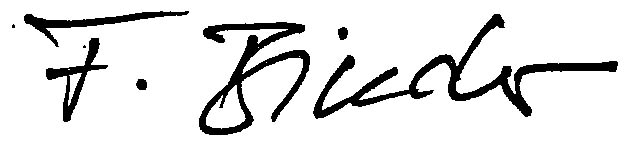 F. Bieder